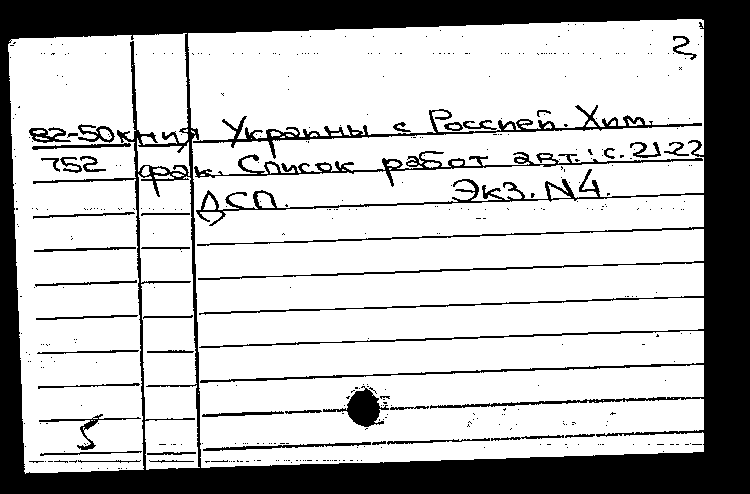 2
82-50 кния Украины с Россией. Хим.
752 фак. Список работ авт.: с. 21-22
ДСП. Экз. N4.
5